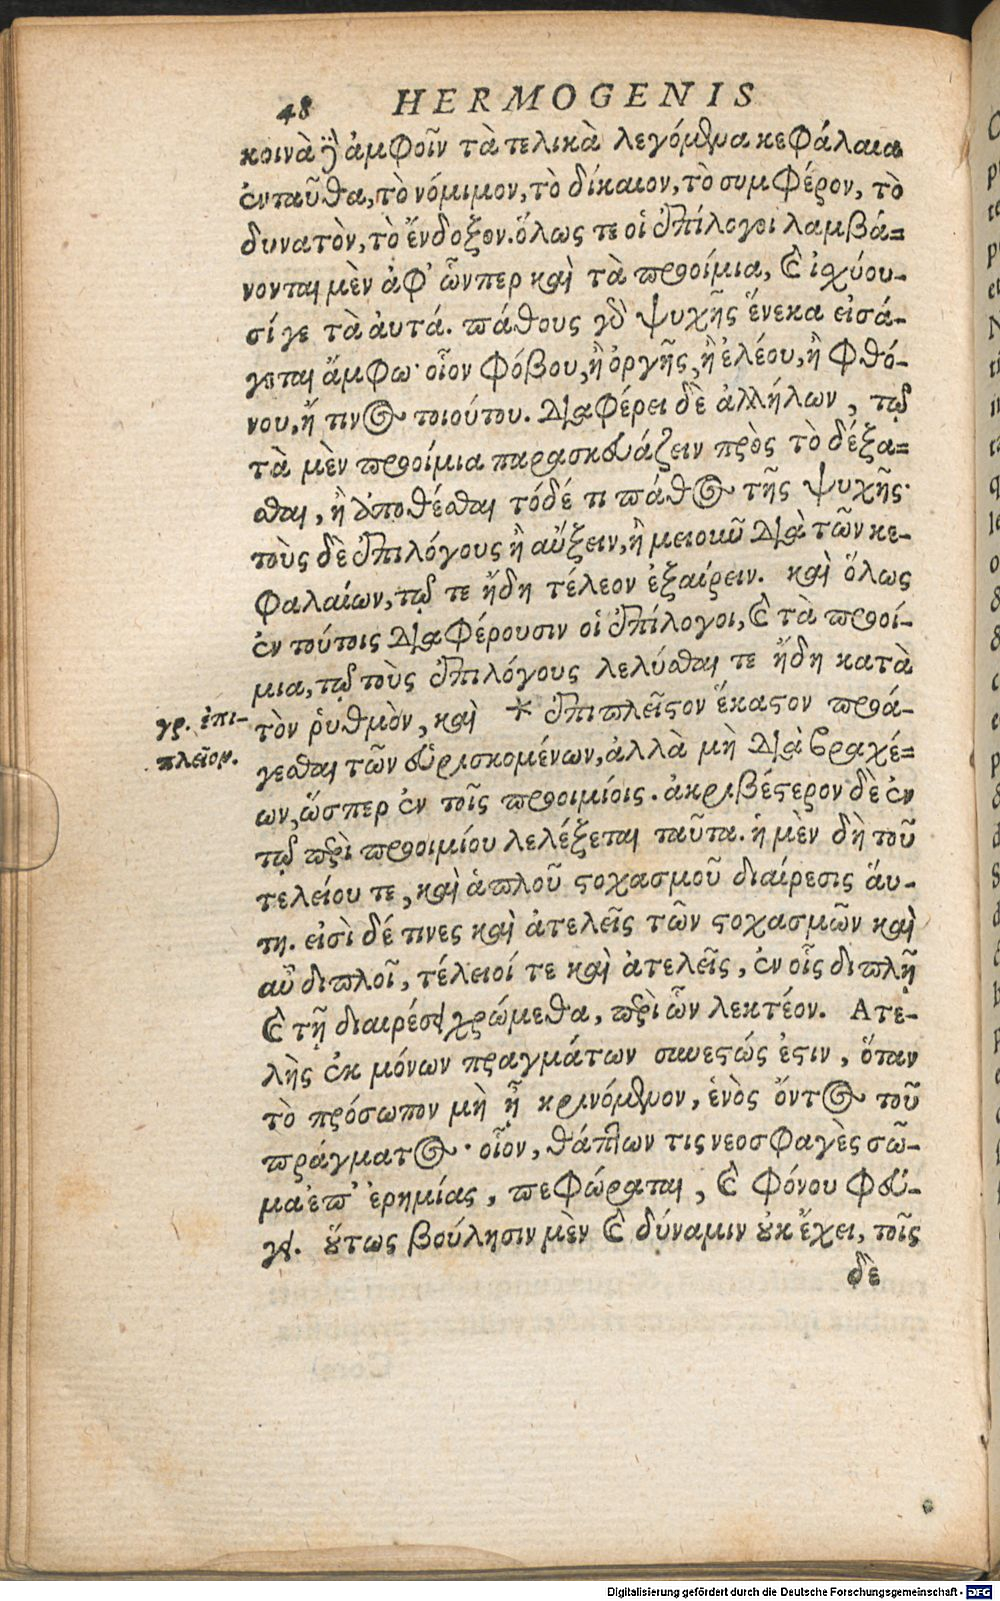 48 HERMOGENIS
κοινὰ δ' ἀμφοῖν τὰ τελικὰ λεγόμενα κεφάλαια
ἐνταῦθα, τὸ νόμιμον, τὸ δίκαιον, τὸ συμφέρον, τὸ
δυνατὸν, τὸ ἔνδοξον. ὅλως τε οἱ ἐπίλογοι λαμβά=
νονται μὲν ἀφ' ὧνπερ καὶ τὰ προοίμια, καὶ ἰχύου-
σί γε τὰ ἀυτά. πάθους γὰρ ψυχῆς ἕνεκα εἰσά-
γεται ἄμφω· οἷον φόβου, ἢ ὀργῆς, ἢ ἐλέου, ἢ φθό-
νου, ἤ τινος τοιούτου. διαφέρει δὲ ἀλλήλων, τῷ
τὰ μὲν προοίμια παρασκευάζειν πρὸς τὸ δέξα=
σθαι, ἢ ἀποθέσθαι τόδέ τι πάθος τῆς ψυχῆς·
τοὺς δὲ ἐπιλόγους ἢ αὔξειν, ἢ μειοῦν διὰ τῶν κε-
φαλαίων, τῷ τε ἤδη τέλεον ἐξαίρειν. καὶ ὅλως
ἐν τούτοις διαφέρουσιν οἱ ἐπίλογοι, καὶ τὰ προοί-
μια, τῷ τοὺς ἐπιλόγους λελύσθαι τε ἤδη κατὰ
τὸν ῥυθμὸν, καὶ * ἐπιπλεῖστον ἕκαστον προά-
γρ. ἐπι-
πλεῖον.
γεσθαι τῶν εὑρισκομένων, ἀλλὰ μὴ διὰ βραχέ=
ων, ὥσπερ ἐν τοῖς προοιμίοις. ἀκριβέστερον δὲ ἐν
τῷ περὶ προοιμίου λελέξεται ταῦτα. ἡ μὲν δὴ τοῦ
τελείου τε, καὶ ἁπλοῦ στοχασμοῦ διαίρεσις ἅυ-
τη. εἰσὶ δέ τινες καὶ ἀτελεῖς τῶν στοχασμῶν καὶ
αὖ διπλοῖ, τέλειοί τε καὶ ἀτελεῖς, ἐν οἷς διπλῇ
καὶ τῇ διαιρέσει χρώμεθα, περὶ ὧν λεκτέον. Ατε-
λὴς ἐκ μόνων πραγμάτων συνεστώς ἐστιν, ὅταν
τὸ πρόσωπον μὴ ᾖ κρινόμενον, ἑνὸς ὄντος τοῦ
πράγματος· οἷον, θάπτων τις νεοσφαγὲς σῶ-
μα ἐπ' ἐρημίας, πεφώραται, καὶ φόνου φεύ-
γει. οὕτως βούλησιν μὲν καὶ δύναμιν οὐκ ἔχει, τοῖς
δὲ
Digitalisierung gefördert durch die Deutsche Forschungsgemeinschaft - DFG